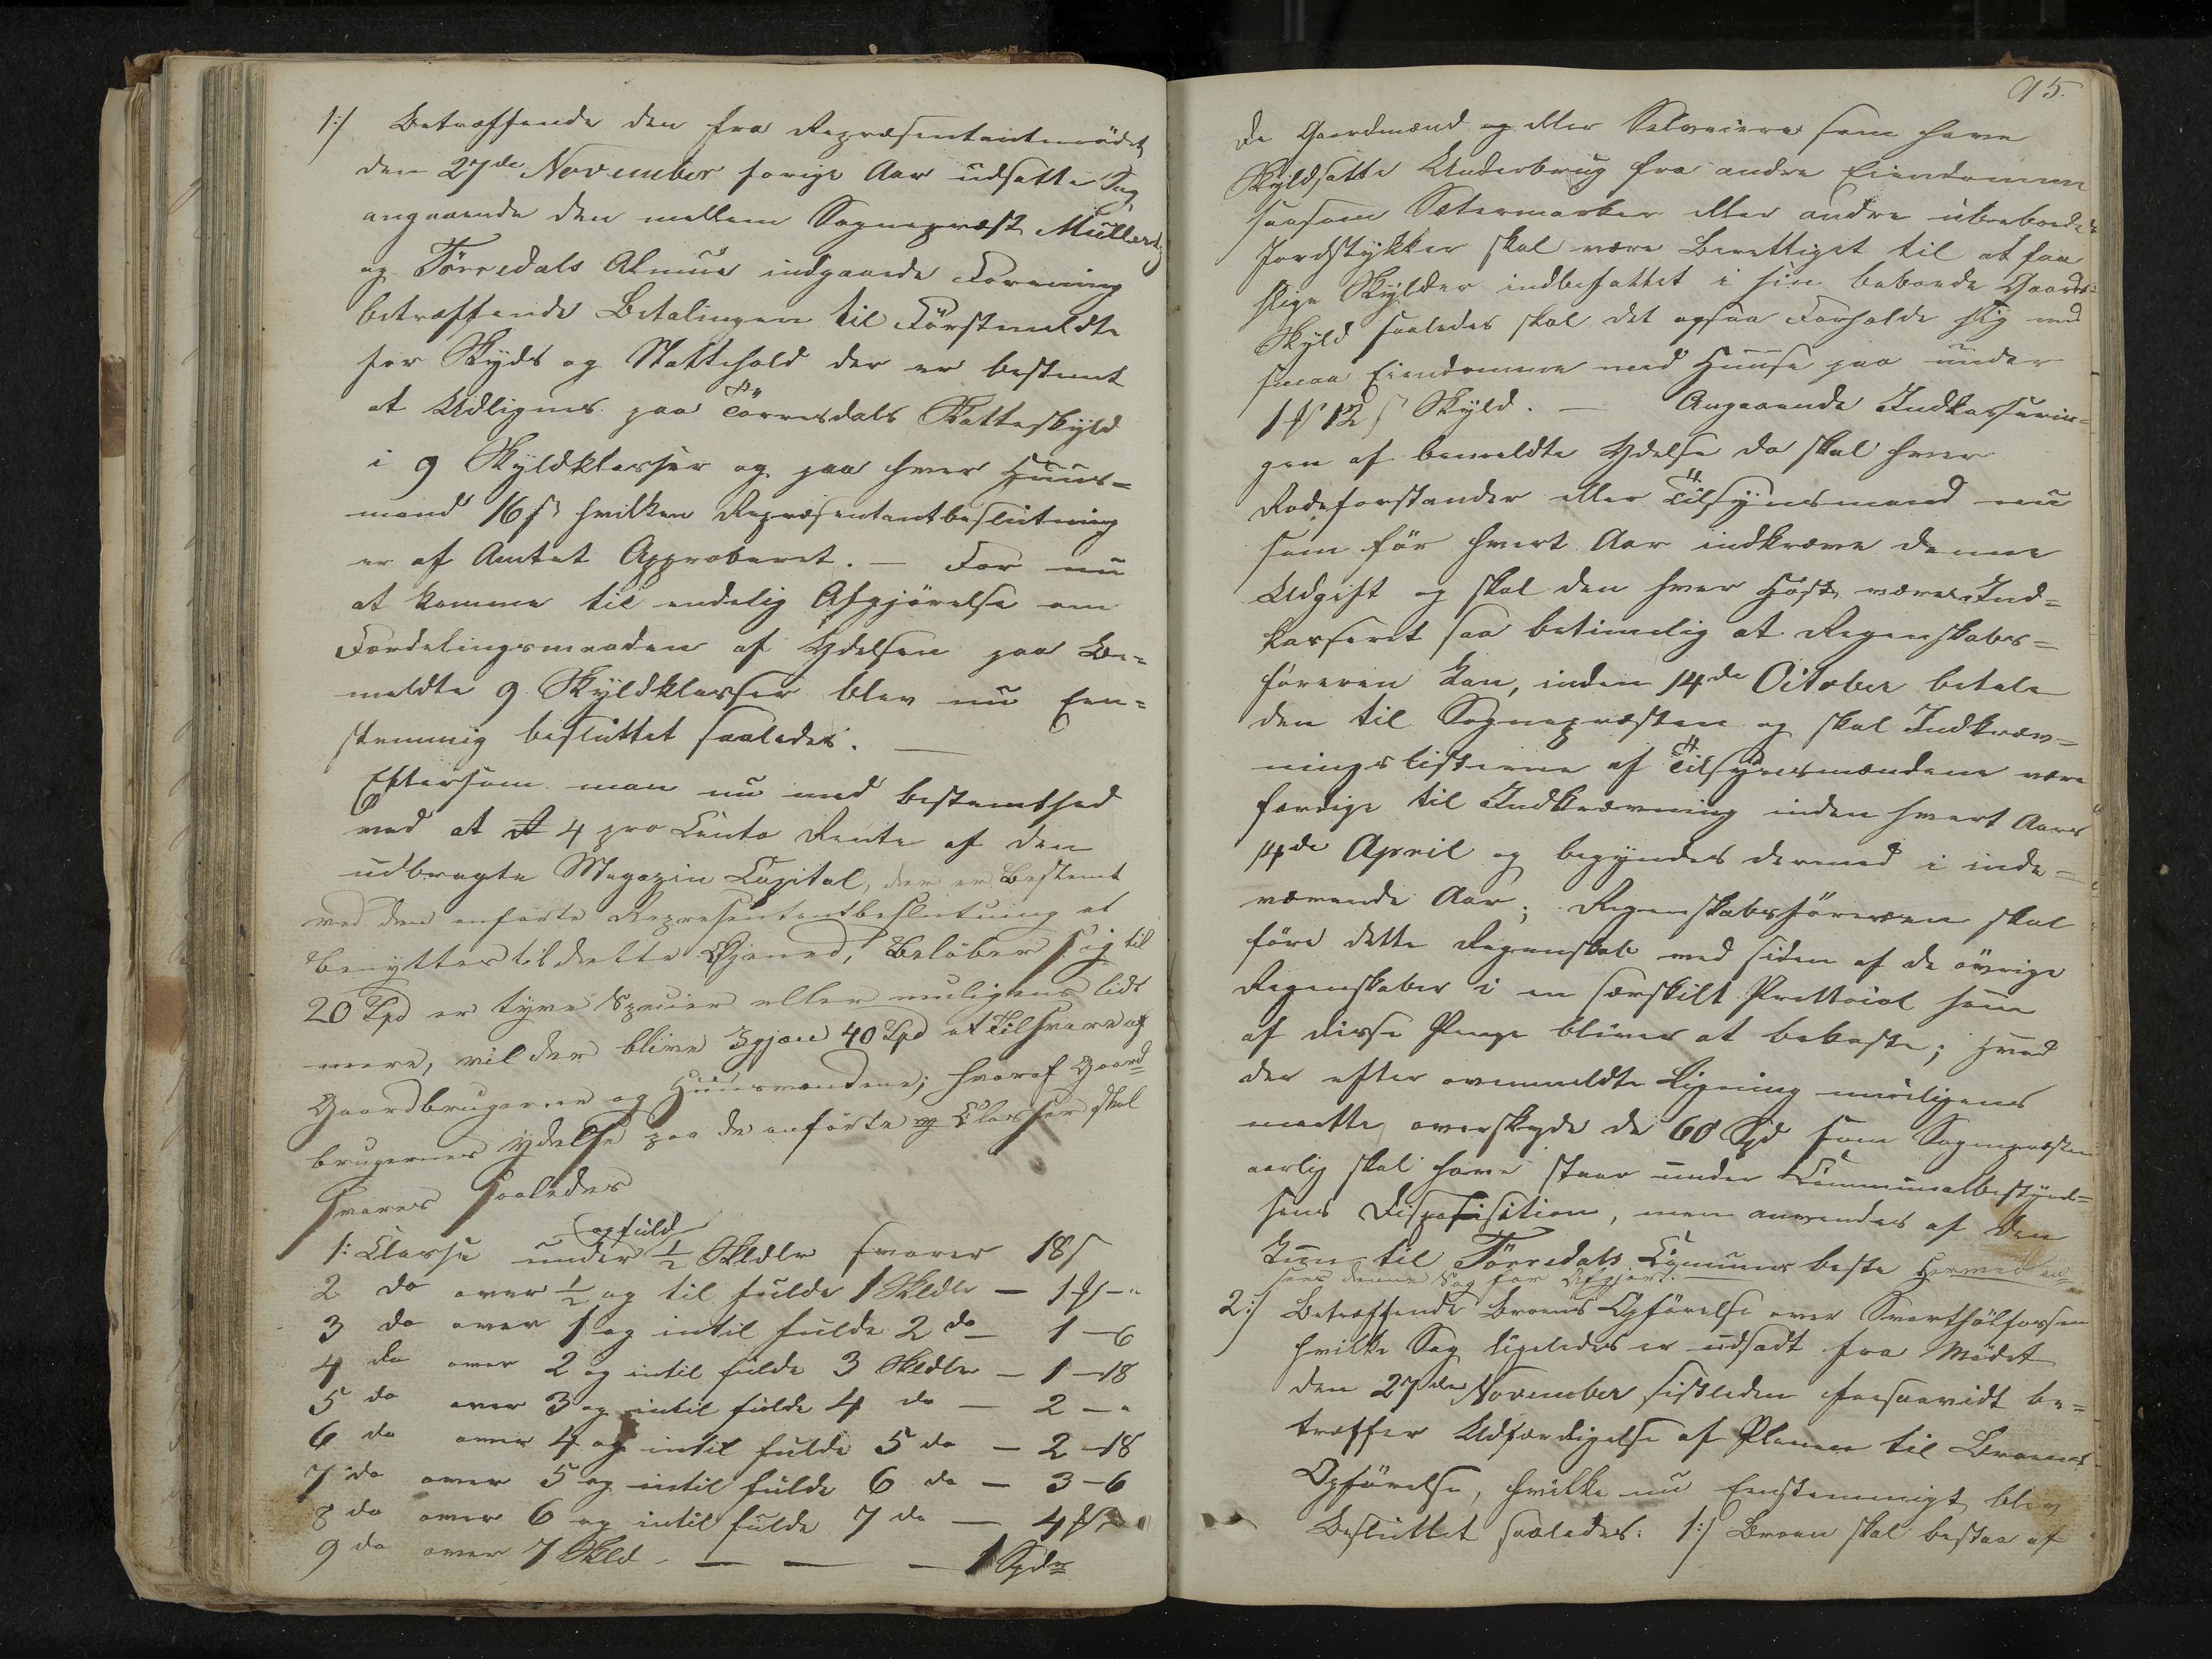 1:/ Betræffende den fra Repræsentantmødet
den 27de November forige Aar udsatte Sag
angaaende den mellem Sognepræst Müllertz
og Tørredals Almue indgaaede Forening
betræffende Betalingen til Førstmeldte
for Skyds og Stattehold der er bestemt
at Udlignes paa Tørresdals Matteskyld
i 9 Skyldklasser og paa hver Huus=
mand 16 s hvilken Repræsentantbeslutning
er af Amtet Approberet. — For nu
at komme til endelig Afgjørelse om
Fordelingsmaaden af Ydelsen paa Be=
meldte 9 Skyldklasser blev nu Een=
stemmig besluttet saaledes. —
Eftersom man nu med bestemthed
ved at 4 pro Cento Rente af den
udbragte Magazin Capital, der er Bestemt
ved den anførte Representantbeslutning at
benyttes til dette Øjemed, Beløber sig til
20 Spd er tyve Specier eller muligens lidt
mere, vil der blive Igjen 40 Spd at Tilsvare af
Gaardbrugerne og Huusmændene; hvoraf Gaard=
brugernes ydelse paa de anførte 9 Classer skal
svares saaledes
opfuld
1: Classe under 1/2 Skldlr svarer 18 s
2 do over 1/2 og til fulde 1 Skldlr — 1 — "
3 do over 1 og intil fulde 2 do — 1 — 6
4 do over 2 og intil fulde 3 Skldlr — 1 — 18
5 do over 3 og intil fulde 4 do — 2 — "
6 do over 4 og intil fulde 5 do — 2 — 18
7 do over 5 og intil fulde 6 do — 3 — 6
8 do over 6 og intil fulde 7 do — 4
9 do over 7 Skld — — — 1 Spdr
95.
De Gaardmænd og eller Selveiere som have
Skyldsatte Underbrug fra andre Eiendomme
saasom Sætermarker eller andre ubeboede
Jordstykker skal være Berettiget til at faa
slige Skylder indbefattet i sin beboede Gaards=
Skyld saaledes skal det ogsaa Forholde sig med
smaa Eiendomme med Huuse paa under
1 12 s Skyld. — Angaaende Indkasserin=
gen af bemeldte Ydelse da skal hver
Rodeforstander eller Tilsynsmand nu
som før hvert Aar indkræve denne
Udgift og skal den hver Høst være Ind=
kasseret saa betimelig at Regenskabs=
føreren kan, inden 14de October betale
den til Sognepræsten og skal Indkræv=
nings listerne af Tilsynsmændene være
færdige til Indkrævning inden hvert Aars
14de April og begyndes dermed i inde=
værende Aar; Regenskabsføreren skal
føre dette Regenskab ved siden af de øvrige
Regenskaber i en særskilt Prottocol som
af disse Penge bliver at bekoste; Hvad
der efter ovenmeldte Ligning muligens
maatte overskyde de 60 Spd som Sognepræsten
aarlig skal have staar under Communalbestyrel=
sens Disposisition, men anvendes af den
kun til Tørredals Comunes beste Hermed an=
sees denne Sag for Afgjort. —
2:/ Betræffende Broens Opførelse over Svarthølfossen
hvilke Sag ligeledes er udsadt fra Mødet
den 27de November sistleden forsaavidt be=
træffer Udfærdigelse af Planen til Broens
Opførelse, hvilke nu Eenstemmigt blev
Besluttet saaledes: 1:/ Broen skal bestaa af